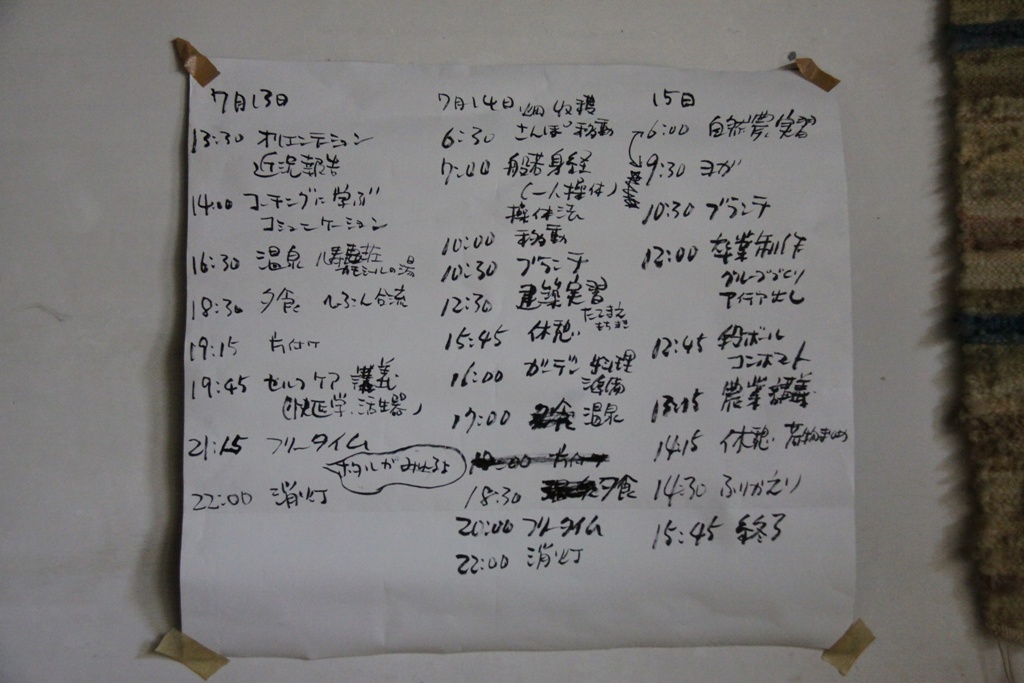 7月13日
13:30 オリエンテーション
近況報告
14:00 コーチングに学ぶ
コミュニケーション
16:30 温泉
18:30 夕食 へるん合流
19:15 片付け
19:45 セルフケア 講義
21:15 フリータイム
ホタルがみれるよ
22:00 消灯
7月14日 畑 収穫
6:30 さんぽ 移動
7:00 般若身経
(一人操体)
操体法
10:00 移動
10:30 ブランチ
12:30 建築実習
15:45 休憩
16:00 ガーデン 料理
準備
17:00 温泉
18:30 夕食
20:00 フリータイム
22:00 消灯
15日
6:00 自然農 実習
9:30 ヨガ
10:30 ブランチ
12:00 卒業制作
グループづくり
アイデア出し
12:45 段ボール
コンポスト
13:15 農業講義
14:15 休憩 荷物まとめ
14:30 ふりかえり
15:45 終了